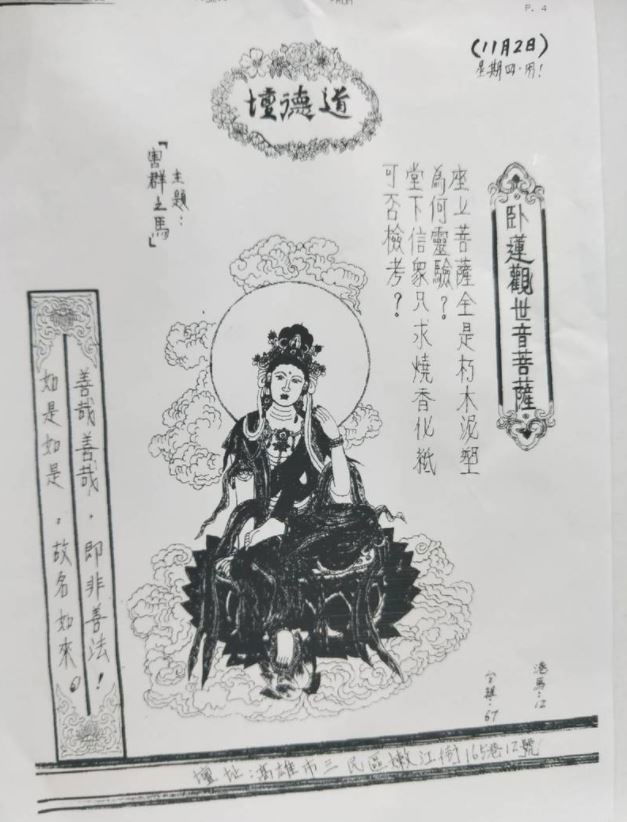 P. 4
(11月2日)
星期四.用!
道德壇
卧蓮觀世音菩薩
座上菩薩全是朽木泥塑
為何靈驗?
堂下信衆只求燒香化紙
可否檢考?
主題:
「害群之馬」
善哉善哉,即非善法!
如是如是。故名如來。
港馬:12
:67
壇址:高雄市三民區嫩江街165巷12號